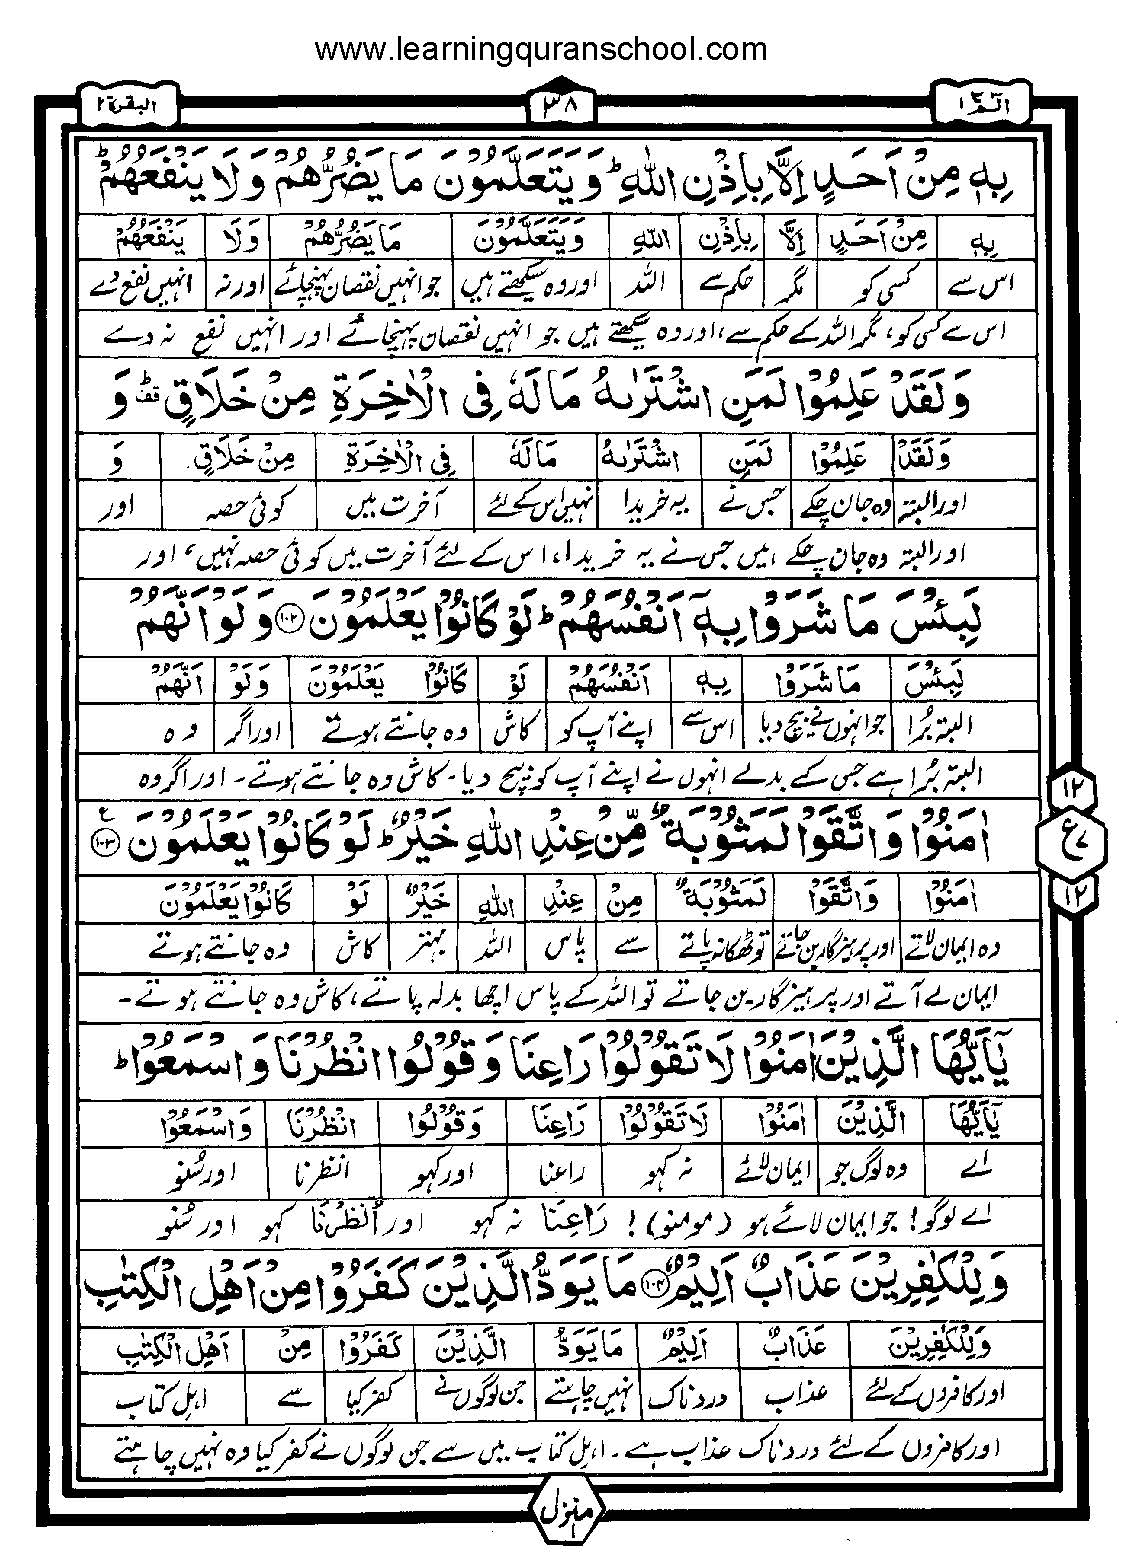 www.learningquranschool.com
البقرة ٢
٣٨
الٓمّٓ ١
بِهٖ مِنْ اَحَدٍ اِلَّا بِاِذْنِ اللّٰهِ ؕ وَيَتَعَلَّمُوْنَ مَا يَضُرُّهُمْ وَلَا يَنْفَعُهُمْ ؕ
بِهٖ مِنْ اَحَدٍ اِلَّا بِاِذْنِ اللّٰهِ وَيَتَعَلَّمُوْنَ مَا يَضُرُّهُمْ وَلَا يَنْفَعُهُمْ
اس سے کسی کو مگر حکم سے اللہ اور وہ سیکھتے ہیں جو انہیں نقصان پہنچائے اور نہ انہیں نفع دے
اس سے کسی کو، مگر اللہ کے حکم سے، اور وہ سیکھتے ہیں جو انہیں نقصان پہنچائے اور انہیں نفع نہ دے
وَلَقَدْ عَلِمُوْا لَمَنِ اشْتَرٰىهُ مَا لَهٗ فِی الْاٰخِرَةِ مِنْ خَلَاقٍ ۛؕ وَ
وَلَقَدْ عَلِمُوْا لَمَنِ اشْتَرٰىهُ مَا لَهٗ فِی الْاٰخِرَةِ مِنْ خَلَاقٍ وَ
اور البتہ وہ جان چکے جس نے یہ خریدا نہیں اس کے لئے آخرت میں کوئی حصہ اور
اور البتہ وہ جان چکے ہیں جس نے یہ خریدا، اس کے لئے آخرت میں کوئی حصہ نہیں، اور
لَبِئْسَ مَا شَرَوْا بِهٖٓ اَنْفُسَهُمْ ؕ لَوْ كَانُوْا يَعْلَمُوْنَ ﴿١٠٢﴾ وَلَوْ اَنَّهُمْ
لَبِئْسَ مَا شَرَوْا بِهٖ اَنْفُسَهُمْ لَوْ كَانُوْا يَعْلَمُوْنَ وَلَوْ اَنَّهُمْ
البتہ بُرا جو انہوں نے بیچ دیا اس سے اپنے آپ کو کاش وہ جانتے ہوتے اور اگر وہ
البتہ بُرا ہے جس کے بدلے انہوں نے اپنے آپ کو بیچ دیا۔ کاش وہ جانتے ہوتے۔ اور اگر وہ
اٰمَنُوْا وَاتَّقَوْا لَمَثُوْبَةٌ مِّنْ عِنْدِ اللّٰهِ خَيْرٌ ؕ لَوْ كَانُوْا يَعْلَمُوْنَ ﴿١٠٣﴾ ع
اٰمَنُوْا وَاتَّقَوْا لَمَثُوْبَةٌ مِنْ عِنْدِ اللّٰهِ خَيْرٌ لَوْ كَانُوْا يَعْلَمُوْنَ
وہ ایمان لاتے اور پرہیزگار بن جاتے تو ٹھکانہ پاتے سے پاس اللہ بہتر کاش وہ جانتے ہوتے
ایمان لے آتے اور پرہیزگار بن جاتے تو اللہ کے پاس اچھا بدلہ پاتے، کاش وہ جانتے ہوتے۔
١٢
ع ٧
١٢
يٰٓاَيُّهَا الَّذِيْنَ اٰمَنُوْا لَا تَقُوْلُوْا رَاعِنَا وَقُوْلُوا انْظُرْنَا وَاسْمَعُوْا ؕ
يٰٓاَيُّهَا الَّذِيْنَ اٰمَنُوْا لَا تَقُوْلُوْا رَاعِنَا وَقُوْلُوا انْظُرْنَا وَاسْمَعُوْا
اے وہ لوگ جو ایمان لائے نہ کہو راعنا اور کہو انظرنا اور سُنو
اے لوگو! جو ایمان لائے ہو (مومنو)! رَاعِنَا نہ کہو اور اُنْظُرْنَا کہو اور سُنو
وَلِلْكٰفِرِيْنَ عَذَابٌ اَلِيْمٌ ﴿١٠٤﴾ مَا يَوَدُّ الَّذِيْنَ كَفَرُوْا مِنْ اَهْلِ الْكِتٰبِ
وَلِلْكٰفِرِيْنَ عَذَابٌ اَلِيْمٌ مَا يَوَدُّ الَّذِيْنَ كَفَرُوْا مِنْ اَهْلِ الْكِتٰبِ
اور کافروں کے لئے عذاب دردناک نہیں چاہتے جن لوگوں نے کفر کیا سے اہل کتاب
اور کافروں کے لئے دردناک عذاب ہے۔ اہل کتاب میں سے جن لوگوں نے کفر کیا وہ نہیں چاہتے
منزل ١